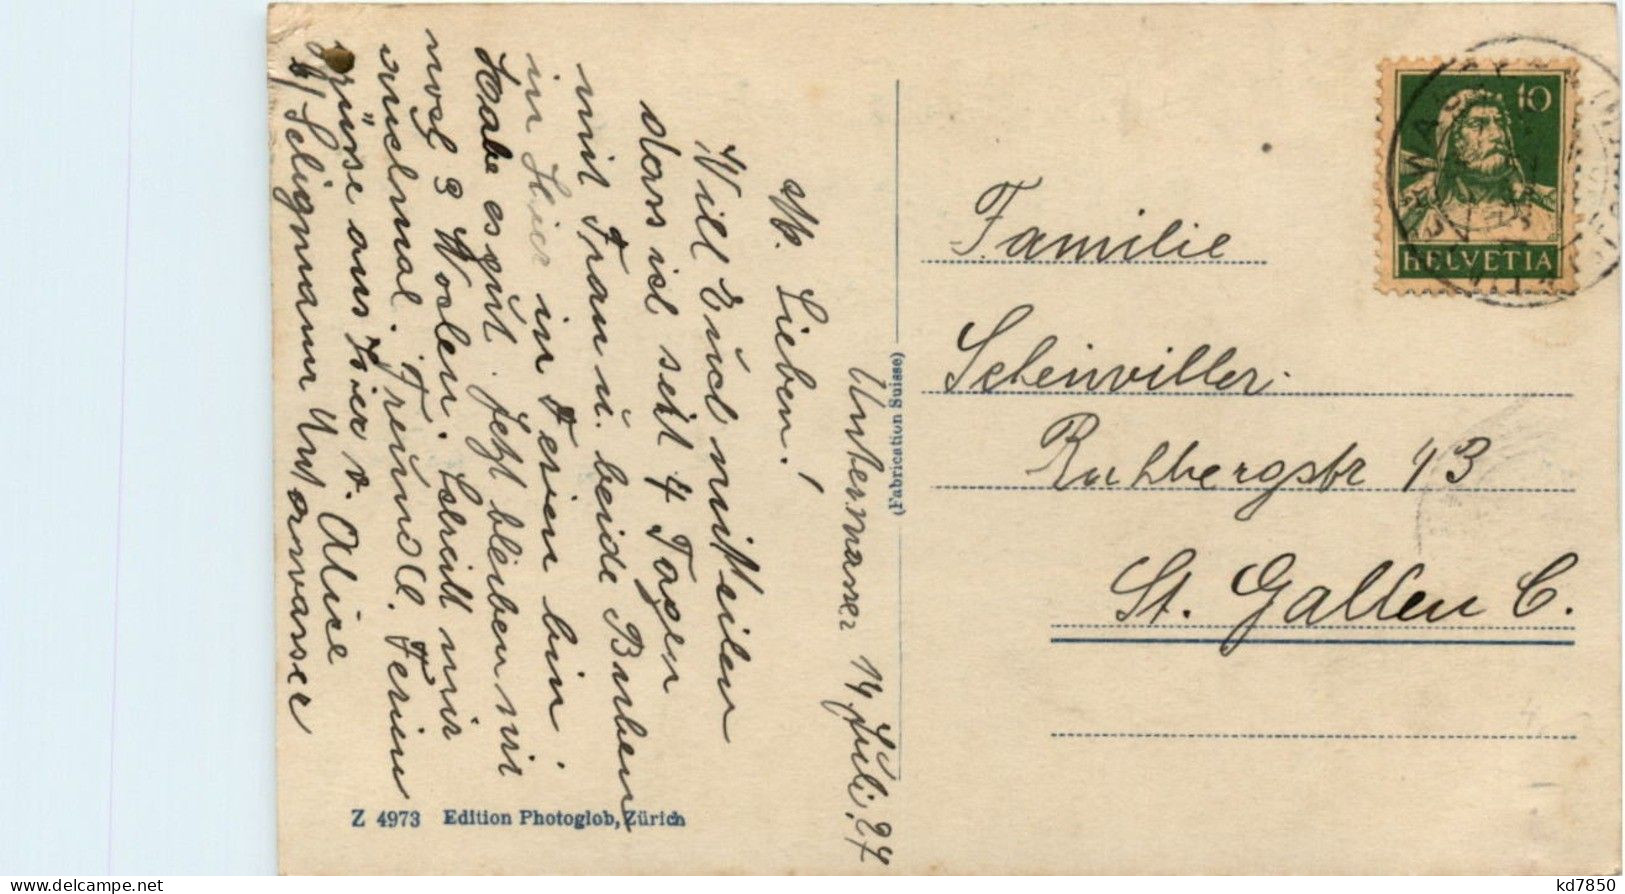 Unterwasser 14 Juli. 27
M. Lieben!
Will Euch mitteilen
dass ich seit 4 Tagen
mit Frau u. beide Buben
in hier in Ferien bin.
Habe es gut. Jetzt bleiben wir
noch 3 Wochen. Schreibt mir
auch mal. Freundl. Ferien
grüsse aus hier v. Alice
b/ Seligmann Unterwasser
(Fabrication Suisse)
Z 4973 Edition Photoglob, Zürich
10
HELVETIA
Familie
Scheiwiller.
Rehbergstr 43
St. Gallen C.
kd7850